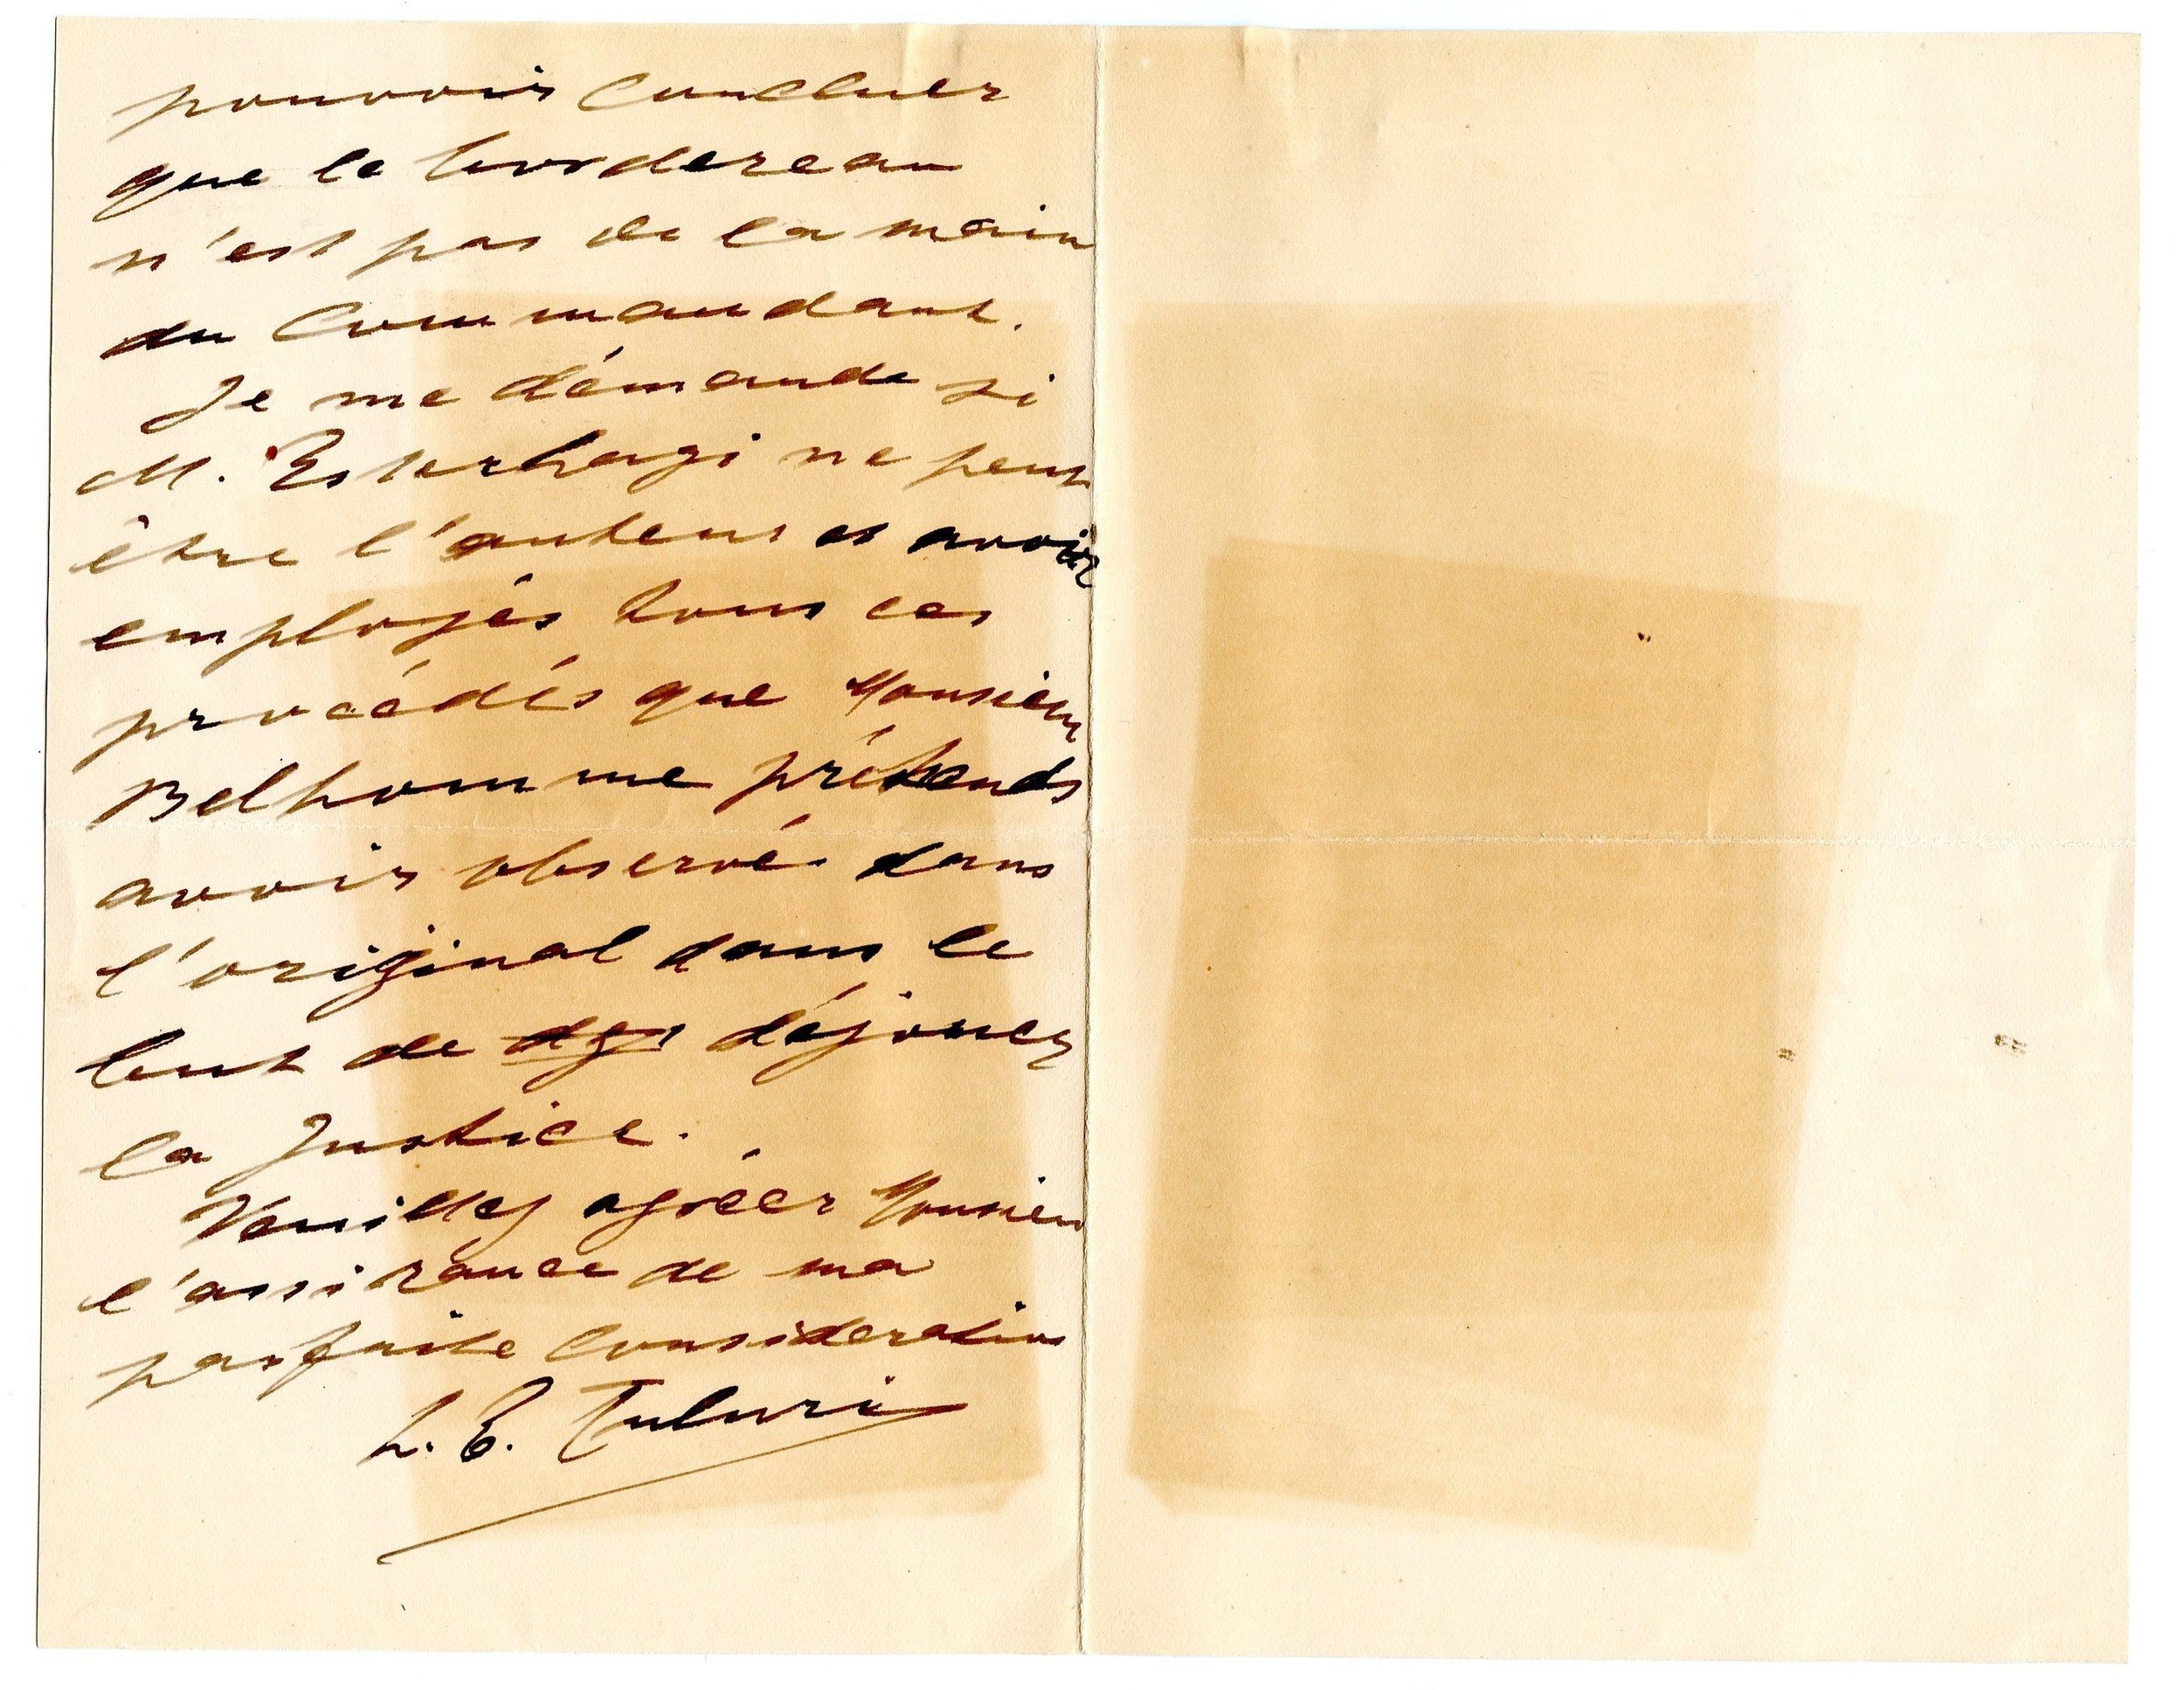 pouvoir concluer
que le bordereau
n'est pas de la main
du Commandant.
Je me démande si
M. Esterhazi ne peut
être l'auteur et avoir
employés tous ces
procédés que Monsieur
Belhomme prétends
avoir observé dans
l'original dans le
but de des déjouer
la Justice.
Veuillez agréer Monsieur
l'assirance de ma
parfaite Consideration
L. E.